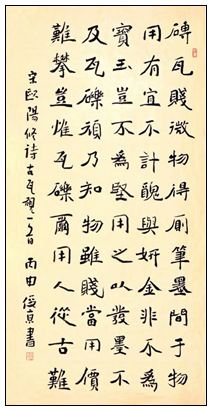 磚瓦賤微物得厠筆墨間于物
用有宜不計醜與妍金非不爲
寶玉豈不爲堅用之以發墨不
及瓦礫頑乃知物雖賤當用價
難攀豈惟瓦礫爾用人從古難
宋歐陽修詩古瓦硯一首 丙申 書